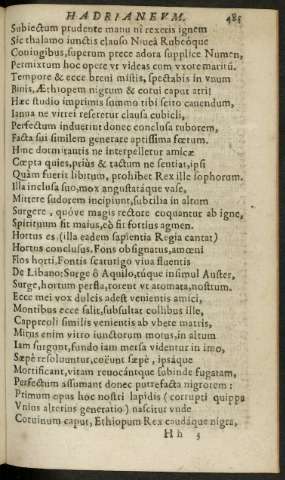 HADRIANEVM. 485
Subiectum prudente manu ni rexeris ignem
Sic thalamo iunctis clauso Niueâ Rubeóque
Coniugibus, superum prece adora supplice Numen,
Permixtum hoc opere vt videas cum vxore maritũ.
Tempore & ecce breni mistis, spectabis in vnum
Binis, Æthiopem nigrum & corui caput atri!
Hæc studio imprimis summo tibi scito canendum,
Ianua ne vitrei reseretur clausa cubicli,
Perfectum induerint donec conclusa ruborem,
Facta sui similem generare aptissima fœtum.
Hinc dormitantis ne interpelletur amicæ
Cœpta quies, priùs & tactum ne sentiat, ipsi
Quàm fuerit libitum, prohibet Rex ille sophorum.
Illa inclusa suo, mox angustatáque vase,
Mittere sudorem incipiunt, subtilia in altum
Surgere, quóve magis rectore coquantur ab igne,
Spirituum fit maius, eò sit fortius agmen.
Hortus es (illa eadem sapientia Regia cantat)
Hortus conclusus, Fons obsignatus, amœni
Flos horti, Fontis scaturigo viua fluentis
De Libano; Surge ô Aquilo, túque insimul Auster,
Surge, hortum perfla, torent vt aromata, nostrum.
Ecce mei vox dulcis adest venientis amici,
Montibus ecce salit, subsultat collibus ille,
Cappreoli similis venientis ab vbere matris,
Mitus enim vitro iunctorum motus, in altum
Iam surgunt, fundo iam mersa videntur in imo,
Sæpè resoluuntur, coëunt sæpè, ipsáque
Mortificant, vitam reuocántque subinde fugatam,
Perfectum assumant donec putrefacta nigrorem:
Primum opus hoc nostri lapidis (corrupti quippe
Vnius alterius generatio) nascitur vnde
Coruinum caput, Ethiopum Rex caudáque nigra,
H h 5